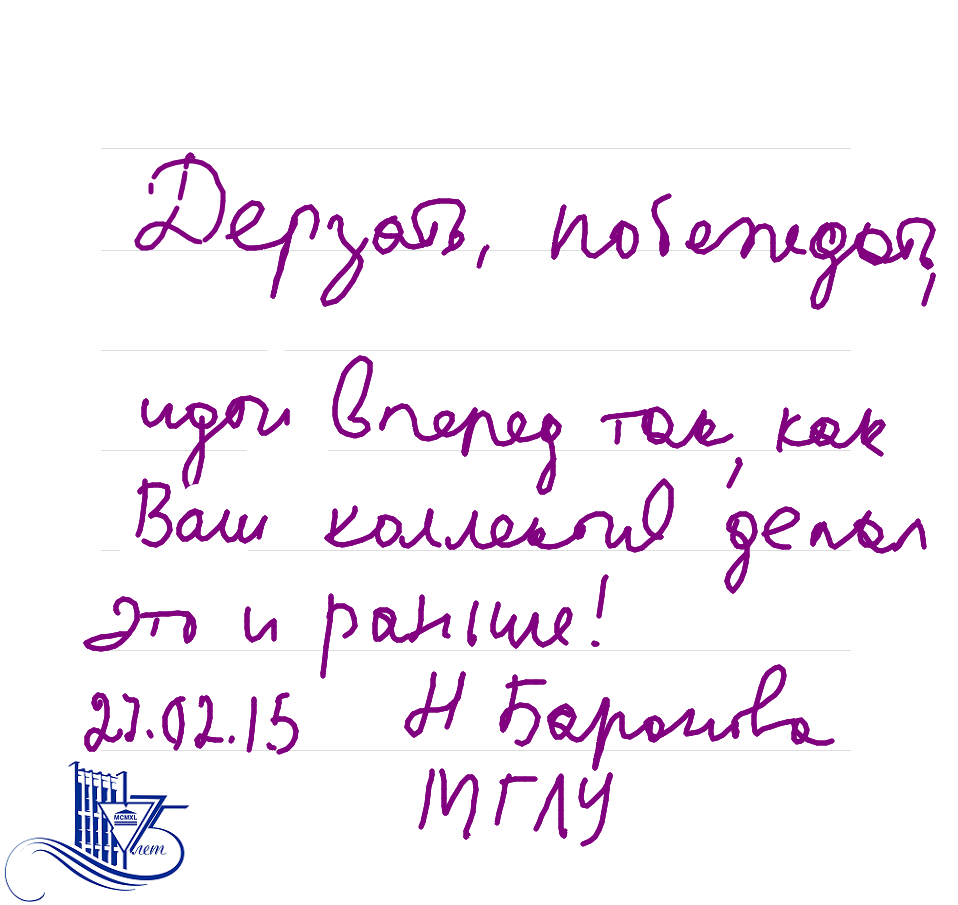 Дерзать, побеждать,
идти вперед так, как
Ваш коллектив делал
это и раньше!
27.02.15 Н Баронова
МГЛУ
MCMXL
75 лет